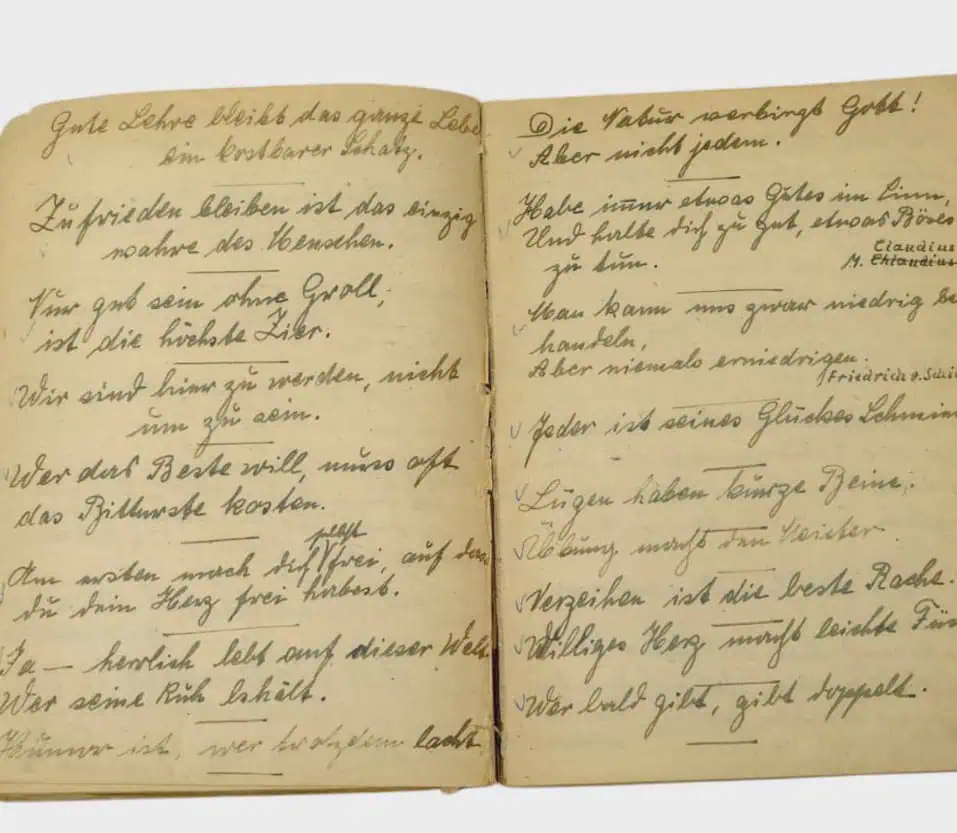 Gute Lehre bleibt das ganze Lebe
ein kostbarer Schatz.
Zufrieden bleiben ist das einzig
wahre des Menschen.
Nur gut sein ohne Groll,
ist die höchste Zier.
Wir sind hier zu werden, nicht
um zu sein.
Wer das Beste will, muss oft
das Bitterste kosten.
selbst
Am ersten mach dich frei, auf das
du dein Herz frei habest.
Ja — herrlich lebt auf dieser Welt
Wer seine Ruh behält.
Humor ist, wer trotzdem lacht
Die Natur verbirgt Gott!
Aber nicht jedem.
Habe immer etwas Gutes im Sinn,
Und halte dich zu gut, etwas Böses
Claudius
zu tun. M. Chlaudius
Man kann uns zwar niedrig be
handeln,
Aber niemals erniedrigen.
Friedrich v. Schi
Jeder ist seines Glückes Schmie
Lügen haben kurze Beine.
Übung macht den Meister.
Verzeihen ist die beste Rache.
Williges Herz macht leichte Füs
Wer bald gibt, gibt doppelt.